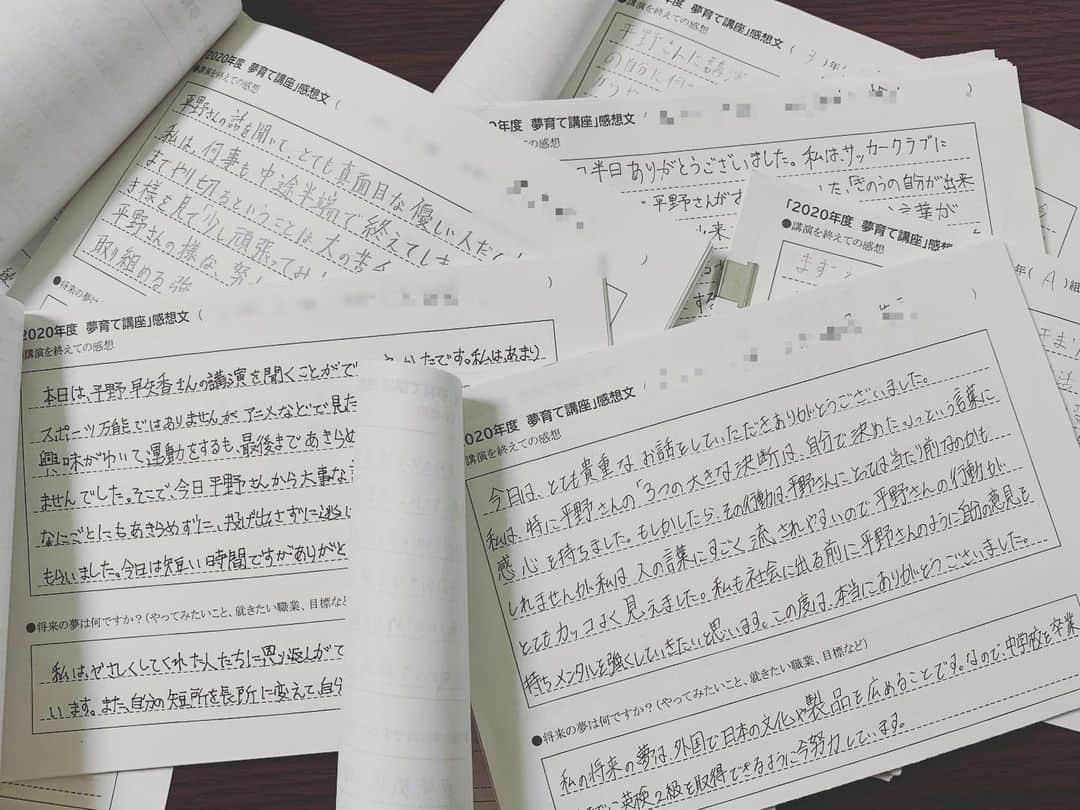 「2020年度 夢育て講座」感想文（
●講演を終えての感想
平野さんの話を聞いて、とても真面目な優しい人だ
私は、何事も中途半端で終えてしま
までやり切るということは、大の苦
き様を見て少し頑張ってみ
平野さんの様な、努
取り組める強
●将来の夢は
年度 夢育て講座」感想文（ 3
●講演を終えての感想
平野さんの講演
の自分に何
20年度 夢育て講座」感想文（
を終えての感想
半日ありがとうございました。私はサッカークラブに
平野さんが
した きのうの自分が出来
言葉が
「2020年度 夢育て講座」感想
●講演を終えての感想
まず
年（A）組
2020年度 夢育て講座」感想文（ ）
講演を終えての感想
本日は、平野早矢香さんの講演を聞くことがで
かったです。私は、あまり
スポーツ万能ではありませんがアニメなどで見た
興味がわいて運動をするも、最後まであきらめ
ませんでした。そこで、今日平野さんから大事な
なにごとにもあきらめずに、投げ出さずに逃
もらいました。今日は短い時間ですがありがと
●将来の夢は何ですか？（やってみたいこと、就きたい職業、目標など
私は、やさしくしてくれた人たちに恩り返しがで
います。また、自分の短所を長所に変えて、自分
2020年度 夢育て講座」感想文（ ）
講演を終えての感想
今日は、とても貴重な お話をしていただきありがとうございました。
私は、特に平野さんの「3つの大きな決断は、自分で決めた。」という言葉に
感心を持ちました。もしかしたら、その行動は、平野さんにとっては当たり前なのかも
しれませんが私は 人の言葉にすごく流されやすいので平野さんの行動が
とてもカッコよく見えました。私も社会に出る前に平野さんのように自分の意見を
持ちメンタルを強くしていきたいと思います。この度は、本当にありがとうございました。
●将来の夢は何ですか？（やってみたいこと、就きたい職業、目標など）
私の将来の夢は、外国で日本の文化や製品を広めることです。なので、中学校を卒業
英検2級を取得できるように今努力しています。